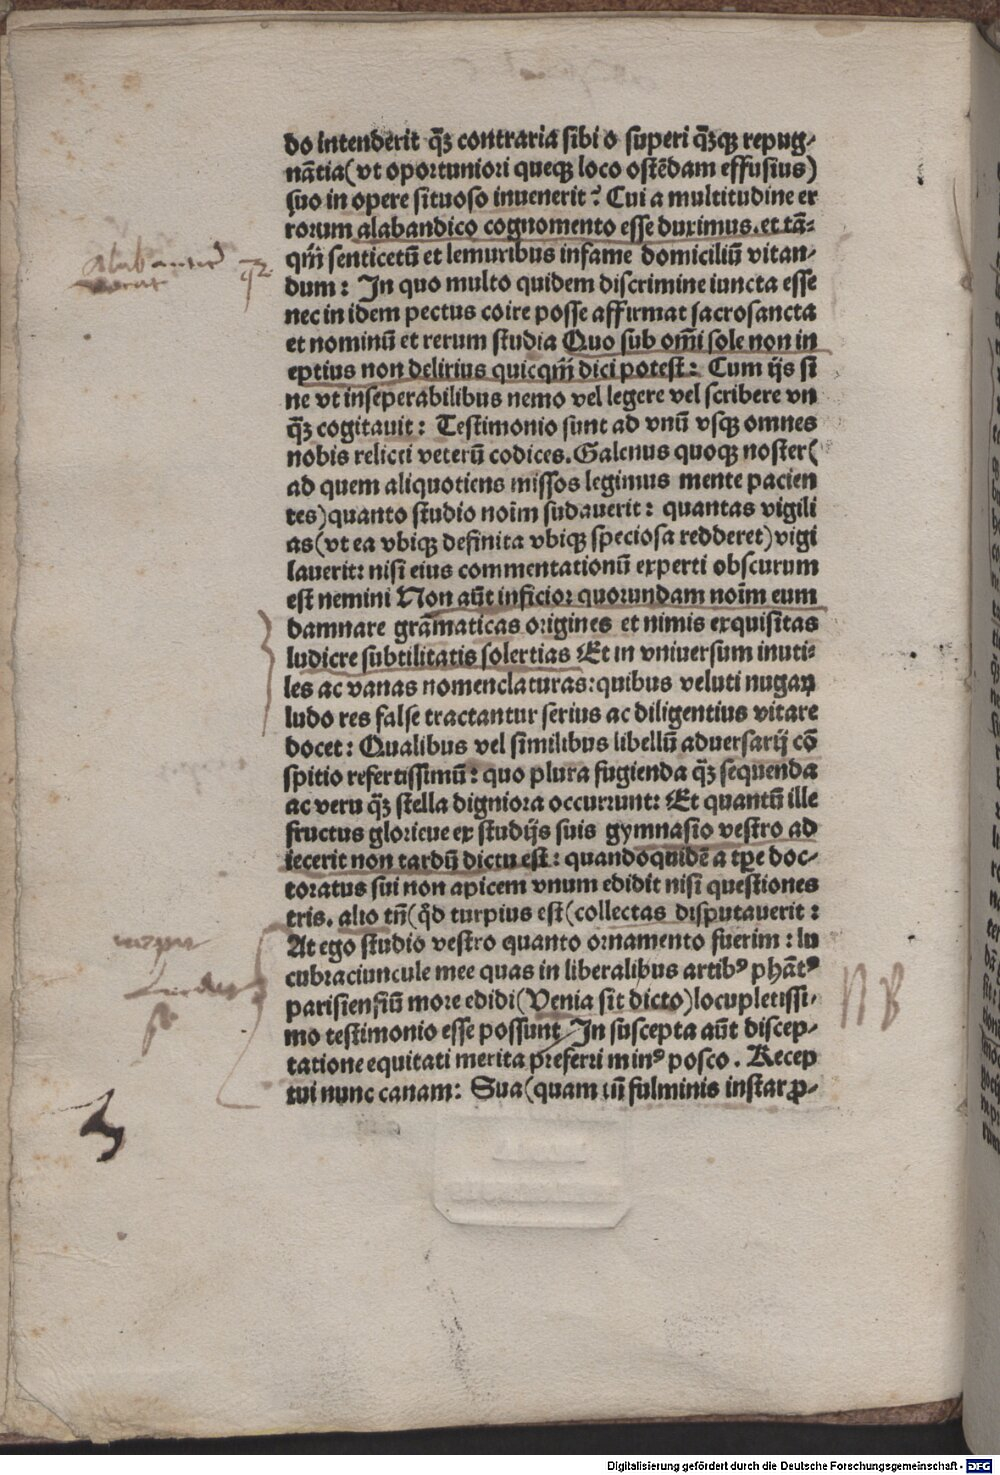 do intenderit q̄ꝫ contraria sibi o superi q̄ꝫꝙ repug-
nātia(vt oportuniori queqꝫ loco ostēdam effusius)
suo in opere situoso inuenerit? Cui a multitudine er
rorum alabandico cognomento esse duximus. et tā-
qm̄ senticetū et lemuribus infame domiciliū vitan-
dum: In quo multo quidem discrimine iuncta esse
nec in idem pectus coire posse affirmat sacrosancta
et nominū et rerum studia Quo sub om̄i sole non in
eptius non delirius quicqm̄ dici potest: Cum ijs si
ne vt inseperabilibus nemo vel legere vel scribere vn
q̄ꝫ cogitauit: Testimonio sunt ad vnū vsqꝫ omnes
nobis relicti veterū codices. Galenus quoqꝫ noster(
ad quem aliquotiens missos legimus mente pacien
tes)quanto studio noīm sudauerit: quantas vigili
as(vt ea vbiqꝫ definita vbiqꝫ speciosa redderet)vigi
lauerit: nisi eius commentationū experti obscurum
est nemini Non aūt inficior quorundam noīm eum
damnare grāmaticas origines et nimis exquisitas
ludicre subtilitatis solertias Et in vniuersum inuti-
les ac vanas nomenclaturas: quibus veluti nugaꝝ
ludo res false tractantur serius ac diligentius vitare
docet: Qualibus vel similibus libellū aduersarij cō
spitio refertissimū: quo plura fugienda q̄ꝫ sequenda
ac veru q̄ꝫ stella digniora occurrunt: Et quantū ille
fructus glorieue ex studijs suis gymnasio vestro ad
iecerit non tardū dictu est: quandoquidē a tp̄e doc-
toratus sui non apicem vnum edidit nisi questiones
tris. alio tn̄(q̄d turpius est(collectas disputauerit:
At ego studio vestro quanto ornamento fuerim: lu
cubraciuncule mee quas in liberalibus artibꝰ phāt̄ꝰ
parisiensiū more edidi(Venia sit dicto)locupletissi-
mo testimonio esse possunt In suscepta aūt discep-
tatione equitati merita preferri minꝰ posco. Recep
tui nunc canam: Sua(quam iū fulminis instar ꝓ-
NB
Digitalisierung gefördert durch die Deutsche Forschungsgemeinschaft - DFG